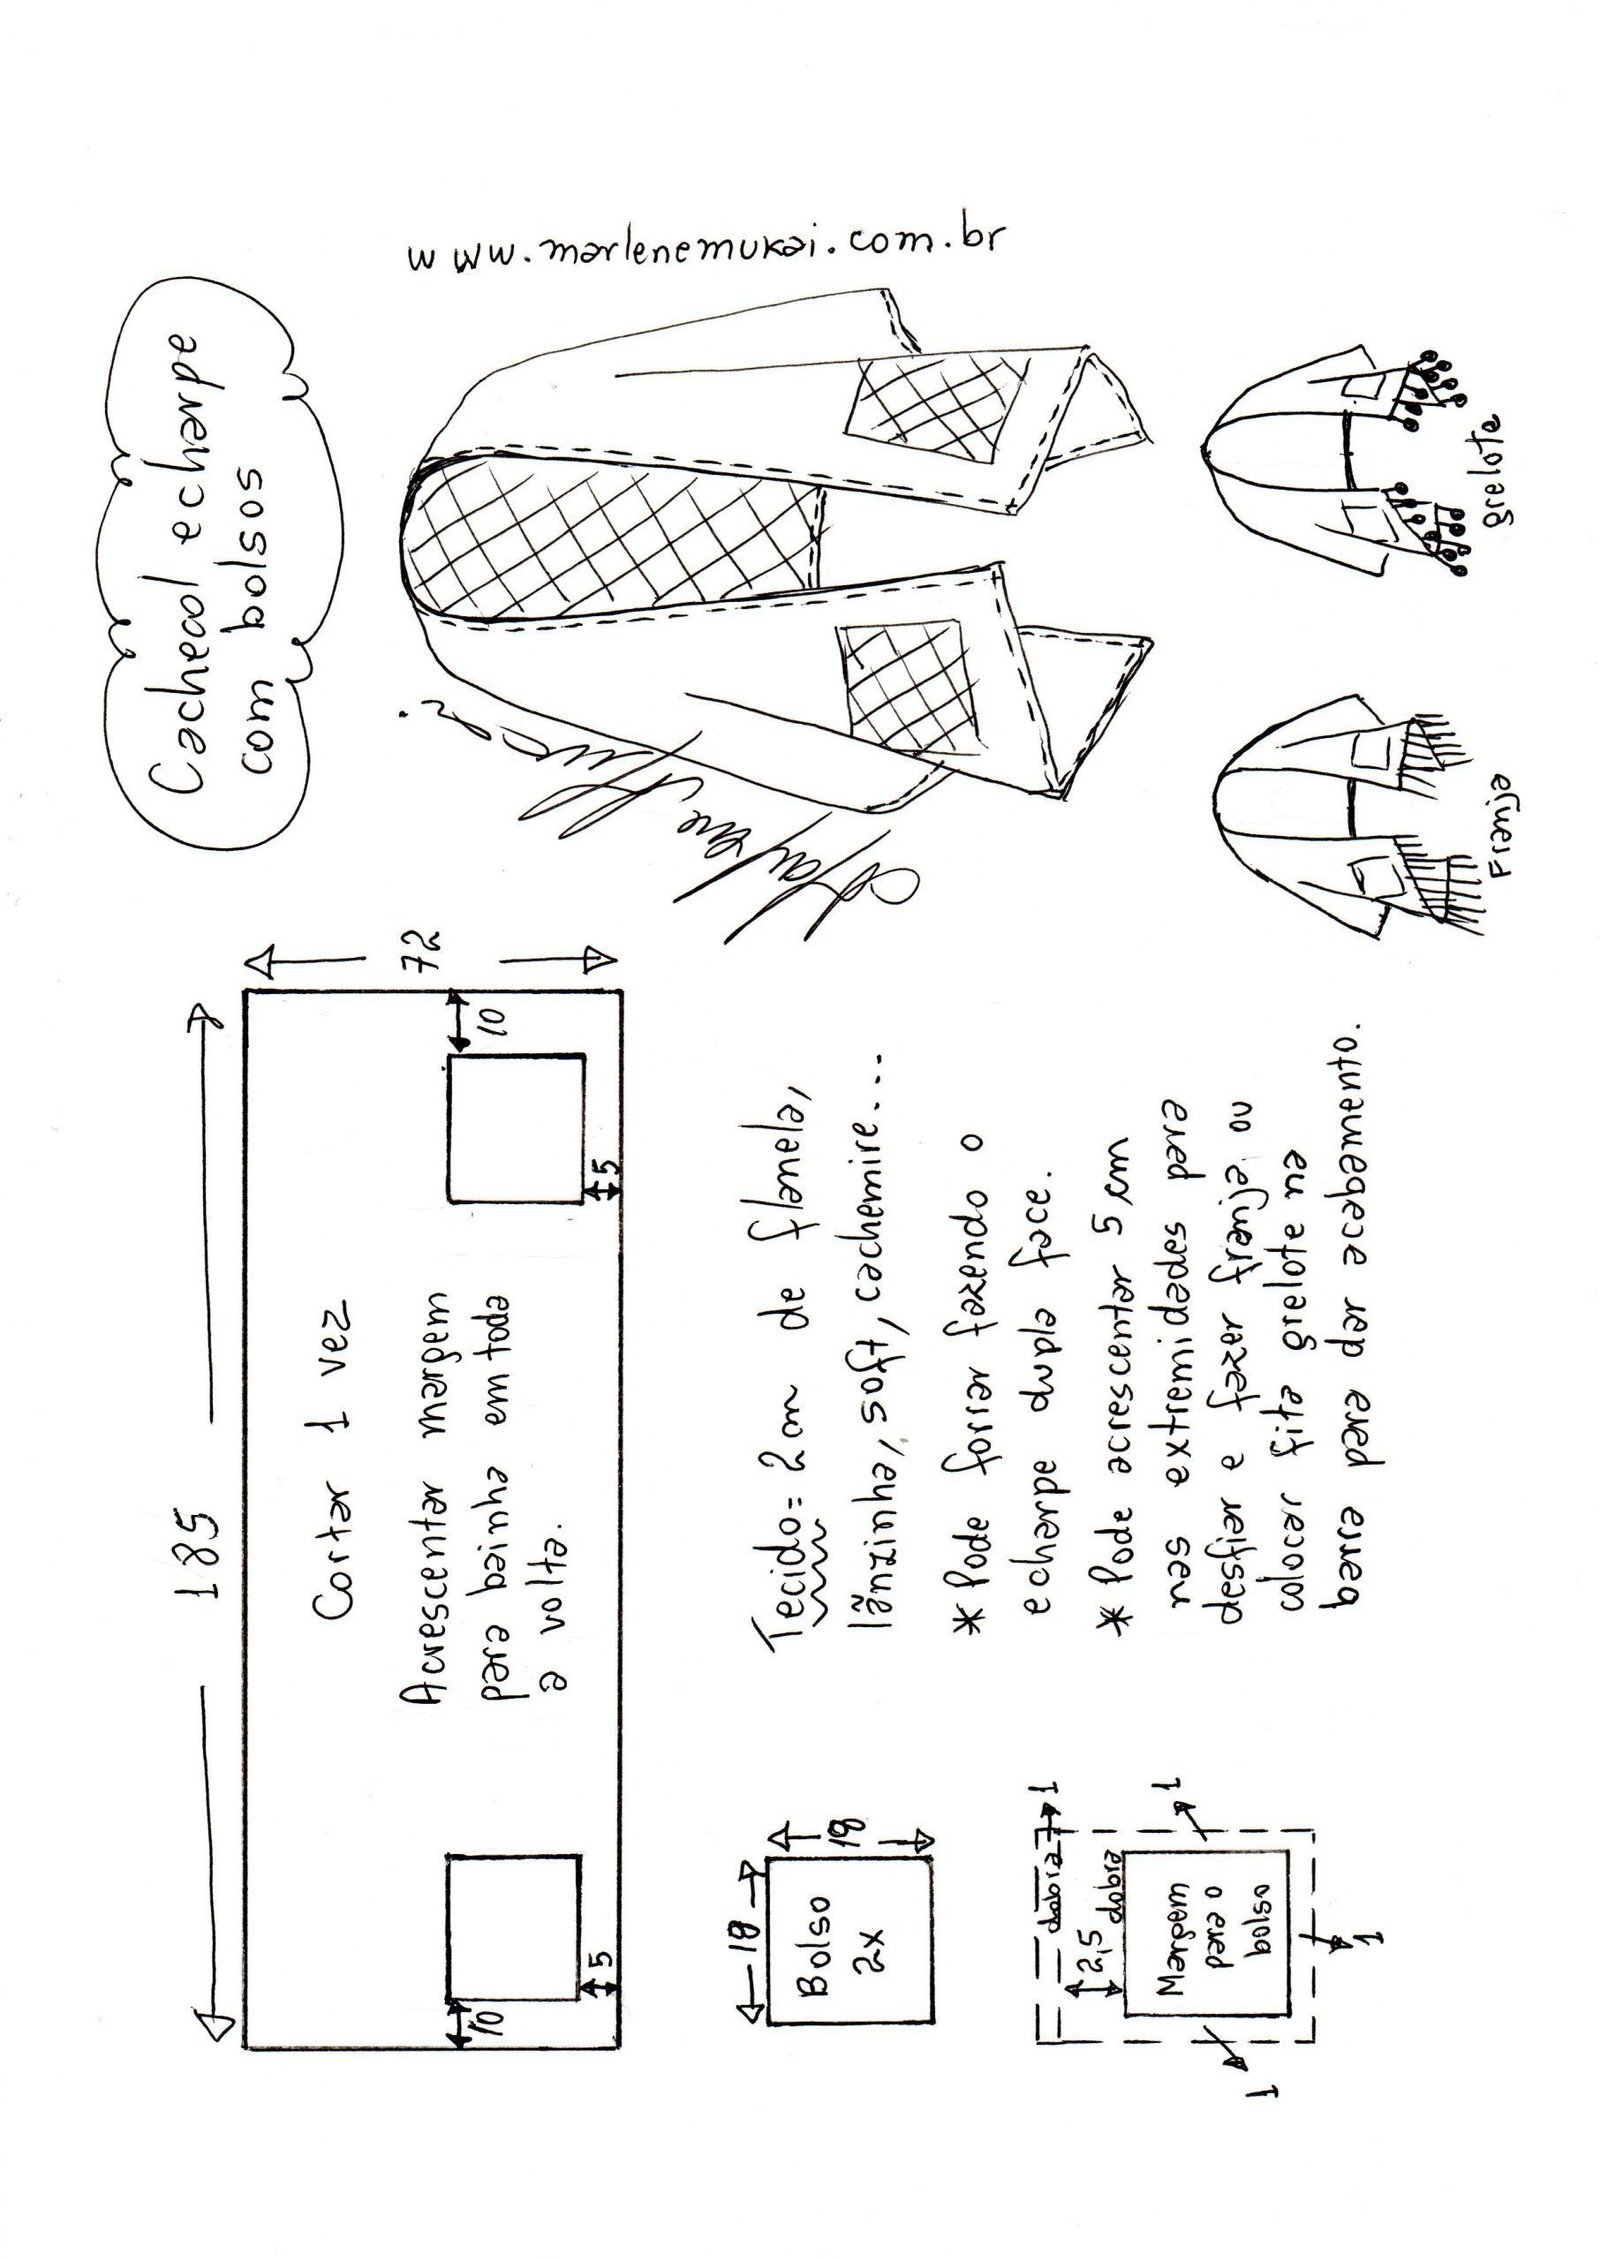 Cachecol echarpe
com bolsos
www.marlenemukai.com.br
Marlene Mukai
185
72
10
5
10
5
Cortar 1 vez
Acrescentar margem
para bainha em toda
a volta.
Tecido= 2m de flanela,
lãnzinha, soft, cachemire...
* Pode forrar fazendo o
echarpe dupla face.
* Pode acrescentar 5 cm
nas extremidades para
desfiar e fazer franja ou
colocar fita grelote na
barra para dar acabamento.
18
18
Bolso
2x
dobra
1
2,5
dobra
Margem
para o
bolso
1
1
1
Franja
grelote